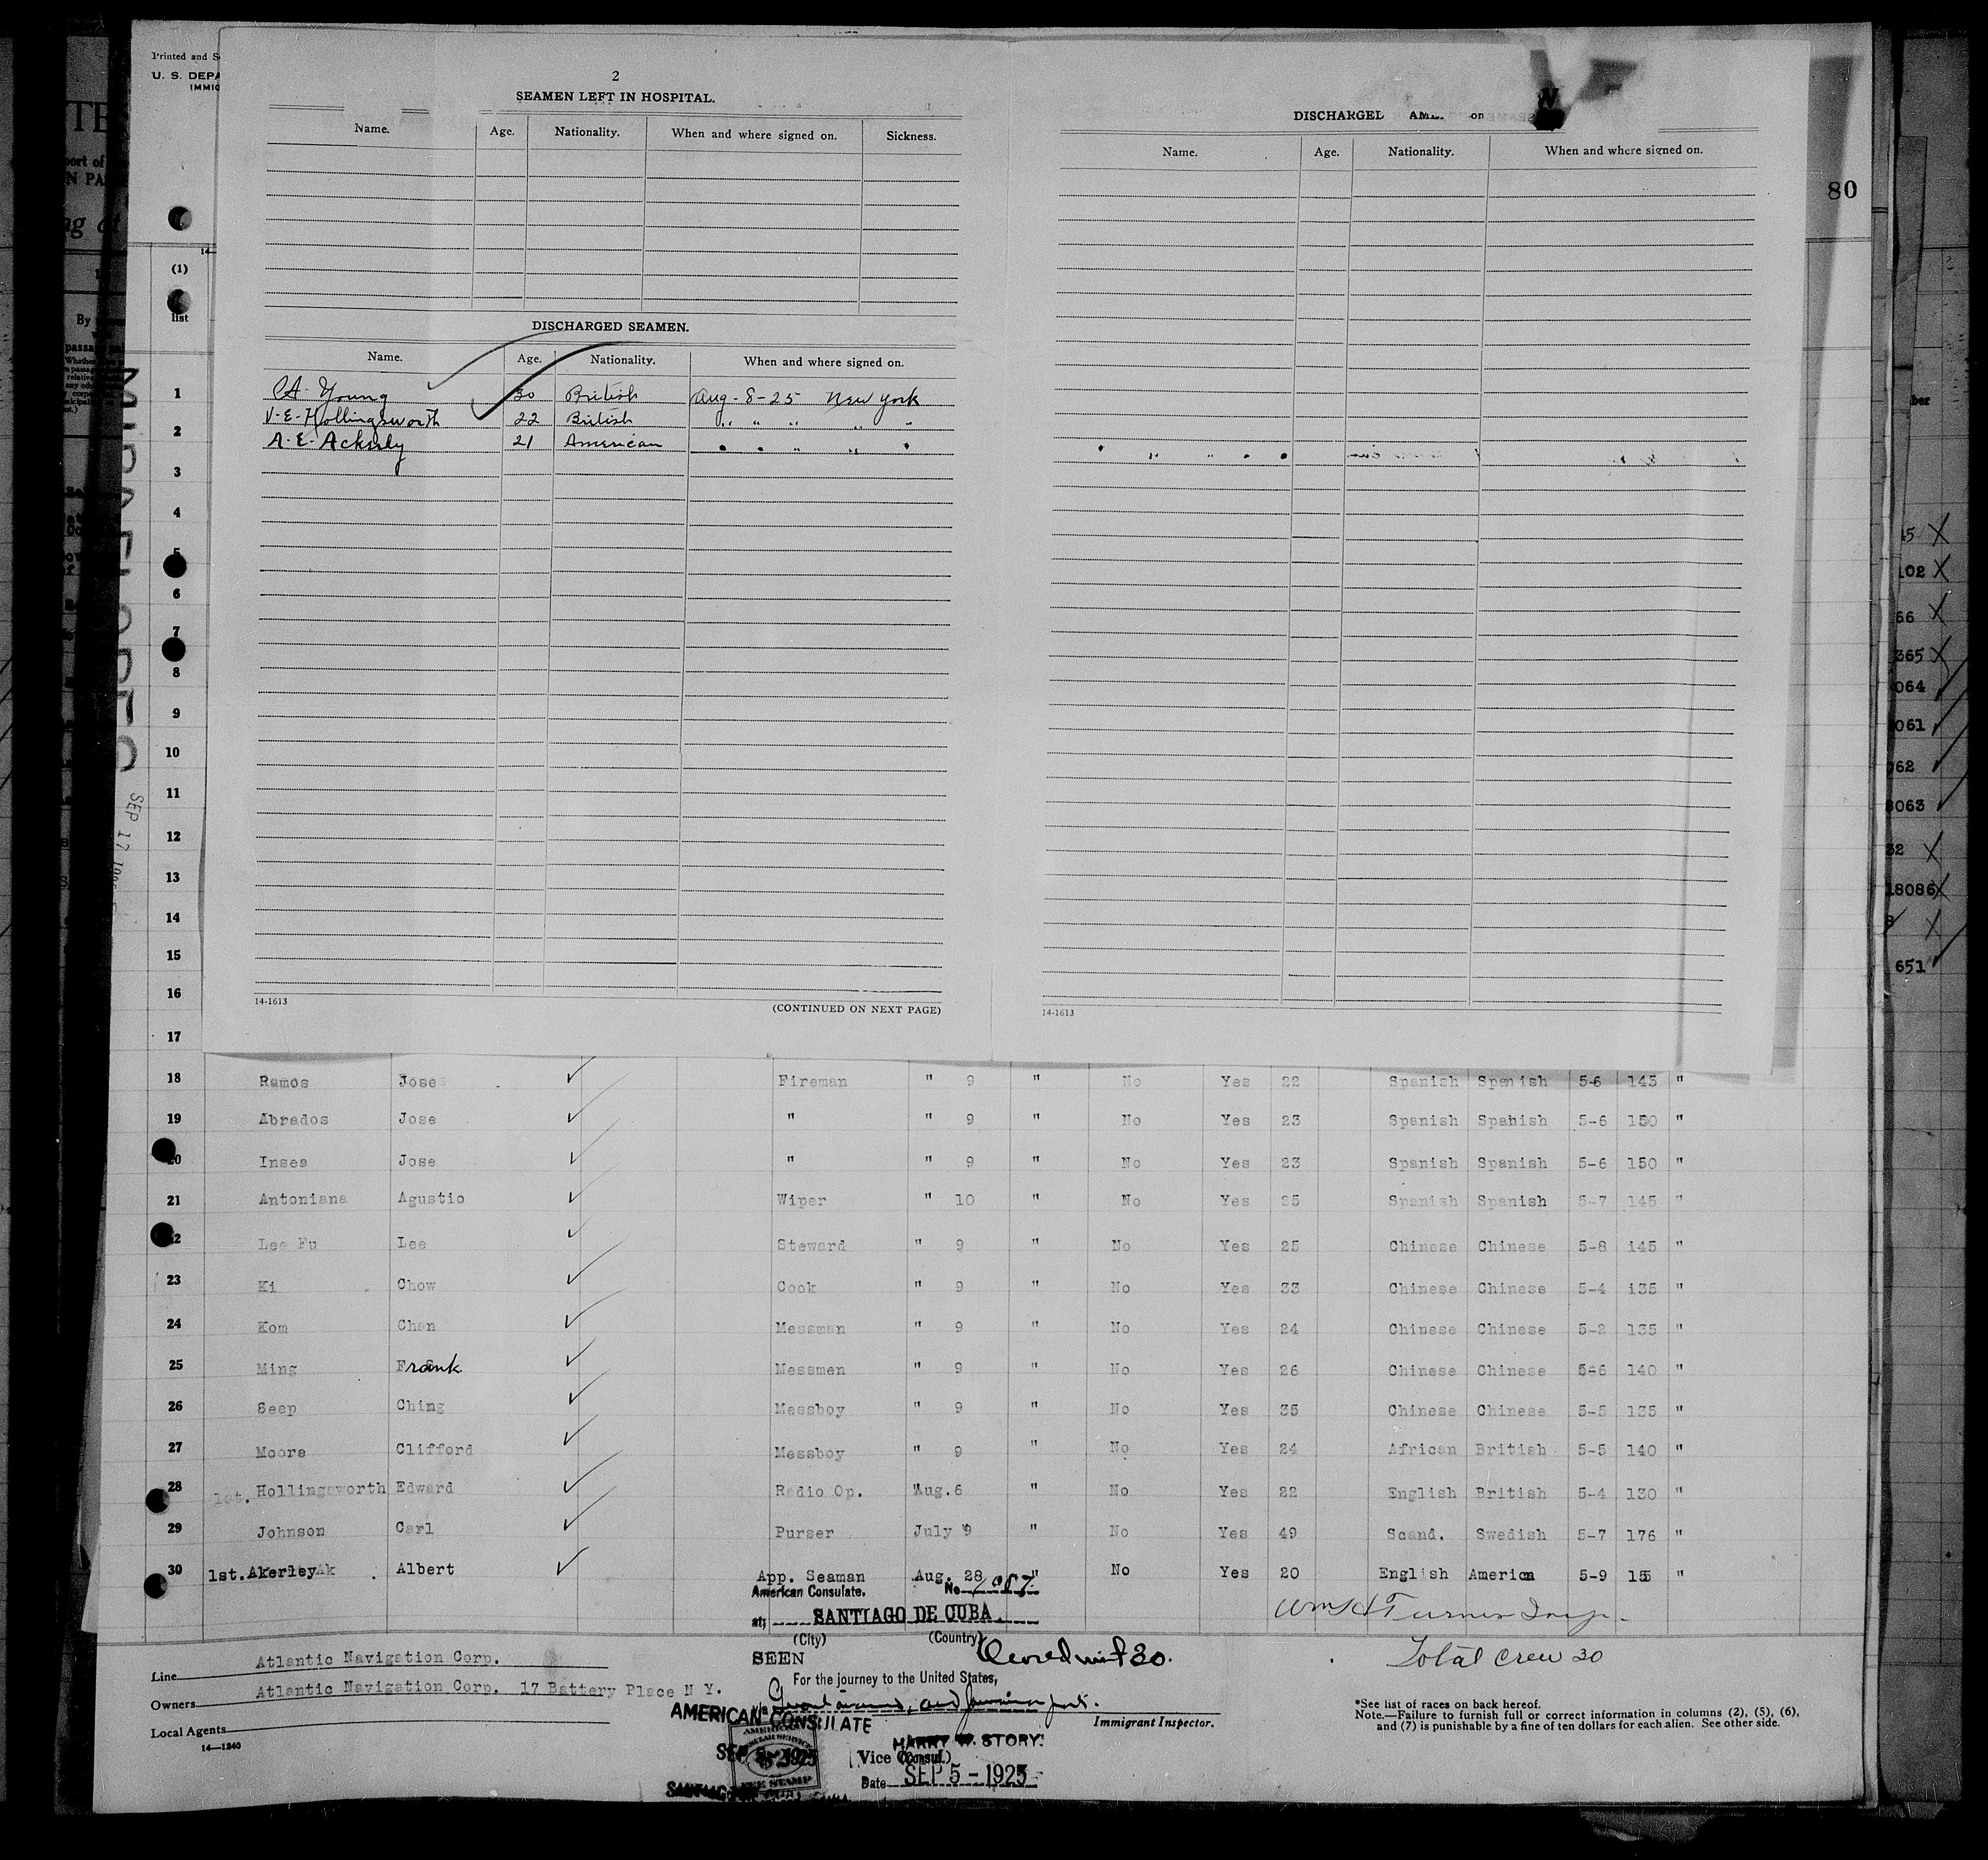 Printed and S
U. S. DEPA
IMMIG
2
SEAMEN LEFT IN HOSPITAL.
Name. Age. Nationality. When and where signed on. Sickness.
DISCHARGED SEAMEN.
Name. Age. Nationality. When and where signed on.
A. Young 30 British Aug-8-25 New York
V-E-Hollingsworth 22 British " " " " "
A-E-Ackerly 21 American " " " " "
14-1613 (CONTINUED ON NEXT PAGE)
DISCHARGED
Name. Age. Nationality. When and where signed on.
14-1613
80
(1)
list
1
2
3
4
5
6
7
8
9
10
11
12
13
14
15
16
17
18 Ramos Jose Fireman " 9 " No Yes 22 Spanish Spanish 5-6 145 "
19 Abrados Jose " " 9 " No Yes 23 Spanish Spanish 5-6 150 "
20 Insea Jose " " 9 " No Yes 23 Spanish Spanish 5-6 150 "
21 Antoniana Agustio Wiper " 10 " No Yes 25 Spanish Spanish 5-7 145 "
22 Lee Fu Lee Steward " 9 " No Yes 25 Chinese Chinese 5-8 145 "
23 Ki Chow Cook " 9 " No Yes 33 Chinese Chinese 5-4 135 "
24 Kom Chan Messman " 9 " No Yes 24 Chinese Chinese 5-2 135 "
25 Ming Frank Messmen " 9 " No Yes 26 Chinese Chinese 5-6 140 "
26 Seep Ching Messboy " 9 " No Yes 35 Chinese Chinese 5-5 135 "
27 Moore Clifford Messboy " 9 " No Yes 24 African British 5-5 140 "
28 1st. Hollingsworth Edward Radio Op. Aug. 6 " No Yes 22 English British 5-4 130 "
29 Johnson Carl Purser July 9 " No Yes 49 Scand. Swedish 5-7 176 "
30 1st. Akerley Albert App. Seaman Aug. 28 " No Yes 20 English America 5-9 155 "
American Consulate. No.
at; SANTIAGO DE CUBA
(City) (Country)
Wm H Turner Insp.
SEEN
For the journey to the United States,
Total Crew 30
Line Atlantic Navigation Corp.
Owners Atlantic Navigation Corp. 17 Battery Place N Y.
Local Agents
14—1240
Immigrant Inspector.
AMERICAN CONSULATE
SEP 5 1925
HARRY W. STORY.
(Vice Consul.)
Date SEP 5 - 1925
*See list of races on back hereof.
Note.—Failure to furnish full or correct information in columns (2), (5), (6),
and (7) is punishable by a fine of ten dollars for each alien. See other side.
SEP 17
102
66
365
064
061
062
8063
32
18086
651